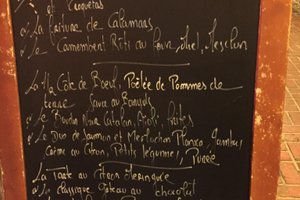 et Croquetas
La Friture de Calamars
Le Camembert Rôti au Four, Miel, Mesclun
La Côte de Boeuf, Poêlée de Pommes de
terre Sauce au Banyuls
Le Boudin Noir Catalan, Frites
Le Duo de Saumon et Merluchon Plancha,
Crème au Citron, Petits légumes, Purée
La Tarte au Citron Meringuée
Le classique Gâteau au chocolat